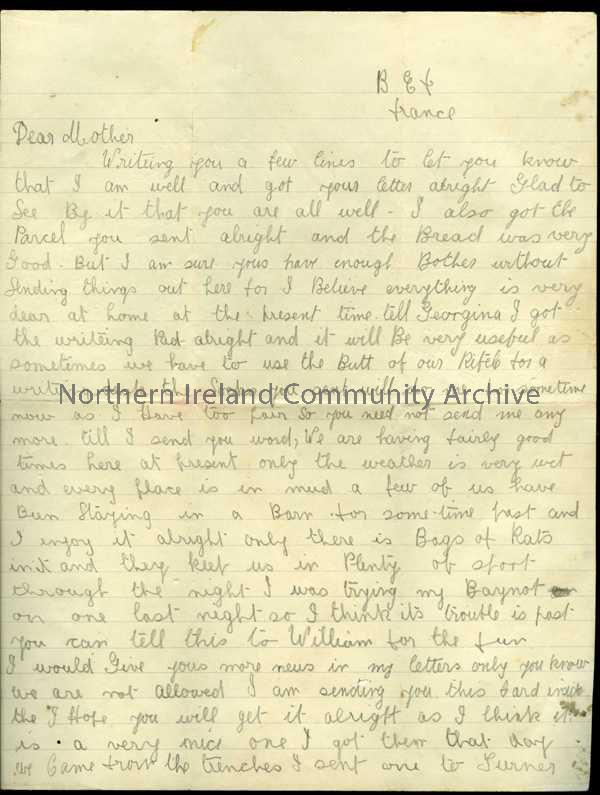 B E F
France
Dear Mother
Writing you a few lines to let you know
that I am well and got your letter alright Glad to
See By it that you are all well - I also got the
Parcel you sent alright and the Bread was very
Good. But I am sure yous have enough Bother without
Sending things out here for I Believe everything is very
dear at home at the present time. tell Georgina I got
the writeing Pad alright and it will Be very useful as
sometimes we have to use the Butt of our Rifle for a
Northern Ireland Community Archive
now as I Have too pair So you need not send me any
more till I send you word, We are having fairly good
times here at present only the weather is very wet
and every place is in mud a few of us have
Bun Staying in a Barn for some time past and
I enjoy it alright only there is Bags of Rats
init and they keep us in Plenty of sport
through the night I was trying my Baynot
on one last night so I think its trouble is past
you can tell this to William for the fun
I would Give yous more news in my letters only you know
we are not allowed I am sending you this Card
the I Hope you will get it alright as I think it
is a very nice one I got them that day
we Came from the trenches I sent one to Turner